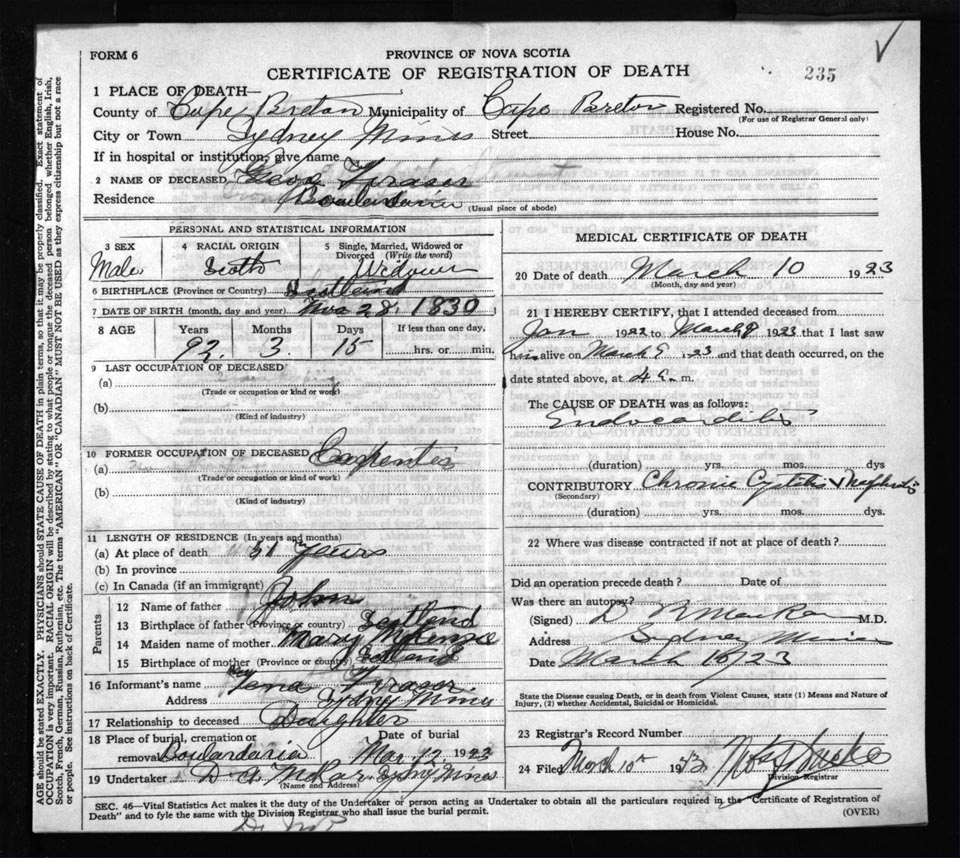 FORM 6
PROVINCE OF NOVA SCOTIA
CERTIFICATE OF REGISTRATION OF DEATH
235
1 PLACE OF DEATH—
County of Cape Breton Municipality of Cape Breton Registered No.
(For use of Registrar General only)
City or Town Sydney Mines Street House No.
If in hospital or institution, give name
2 NAME OF DECEASED Fraser
Residence Boulardarie
(Usual place of abode)
PERSONAL AND STATISTICAL INFORMATION
3 SEX
Male
4 RACIAL ORIGIN
Scotch
5 Single, Married, Widowed or Divorced (Write the word)
Widower
6 BIRTHPLACE (Province or Country) Scotland
7 DATE OF BIRTH (month, day and year) Nov 28, 1830
8 AGE Years Months Days If less than one day,
92. 3. 15 hrs. or min.
9 LAST OCCUPATION OF DECEASED
(a)
(Trade or occupation or kind of work)
(b)
(Kind of industry)
10 FORMER OCCUPATION OF DECEASED Carpenter
(a)
(Trade or occupation or kind of work)
(b)
(Kind of industry)
11 LENGTH OF RESIDENCE (In years and months)
(a) At place of death 51 Years
(b) In province
(c) In Canada (if an immigrant)
Parents
12 Name of father John
13 Birthplace of father (Province or country) Scotland
14 Maiden name of mother Mary McKenzie
15 Birthplace of mother (Province or country) Scotland
16 Informant's name Fraser
Address Sydney Mines
17 Relationship to deceased Daughter
18 Place of burial, cremation or removal Date of burial
Boulardarie Mar. 12 1923
19 Undertaker Sydney Mines
(Name and Address)
MEDICAL CERTIFICATE OF DEATH
20 Date of death March 10 1923
(Month, day and year)
21 I HEREBY CERTIFY, that I attended deceased from
Jan 1922 to March 9 1923 that I last saw
him alive on March 9 1923 and that death occurred, on the
date stated above, at 4 a. m.
The CAUSE OF DEATH was as follows:
Endocarditis
(duration) yrs. mos. dys
CONTRIBUTORY Chronic Cystitis & Nephritis
(Secondary)
(duration) yrs. mos. dys.
22 Where was disease contracted if not at place of death?
Did an operation precede death? Date of
Was there an autopsy?
(Signed) M.D.
Address Sydney Mines
Date March 10/23
State the Disease causing Death, or in death from Violent Causes, state (1) Means and Nature of
Injury, (2) whether Accidental, Suicidal or Homicidal.
23 Registrar's Record Number
24 Filed March 10th 1923
Division Registrar
SEC. 46—Vital Statistics Act makes it the duty of the Undertaker or person acting as Undertaker to obtain all the particulars required in the "Certificate of Registration of
Death" and to fyle the same with the Division Registrar who shall issue the burial permit.
(OVER)
AGE should be stated EXACTLY. PHYSICIANS should STATE CAUSE OF DEATH in plain terms, so that it may be properly classified. Exact statement of
OCCUPATION is very important. RACIAL ORIGIN will be described by stating to what people or tongue the deceased person belonged, whether English, Irish,
Scotch, French, German, Russian, Ruthenian, etc. The terms "AMERICAN" OR "CANADIAN" MUST NOT BE USED as they express citizenship but not a race
or people. See instructions on back of Certificate.